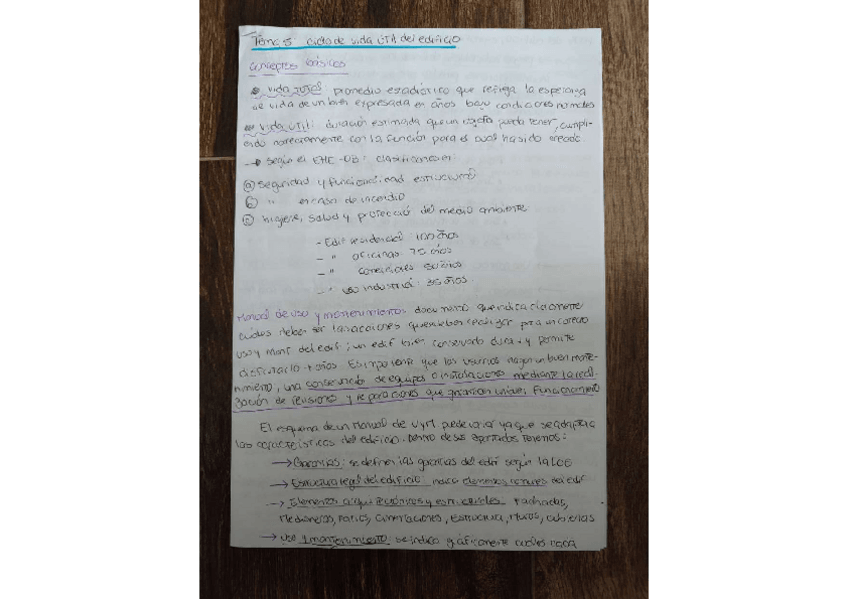 Tema 5: ciclo de vida útil del edificio
Conceptos básicos
Vida total: promedio estadístico que refleja la esperanza
de vida de un bien expresada en años bajo condiciones normales
Vida útil: duración estimada que un objeto puede tener, cumpli-
endo correctamente con la función para el cual ha sido creado.
→ según el EHE-08: clasificación:
a) seguridad y funcionalidad estructural
b) " en caso de incendio
c) higiene, salud y protecció del medio ambiente
- Edif residencial 100 años
- " oficinas 75 años
- " comerciales 50 años
- " uso industrial: 35 años.
Manual de uso y mantenimiento: documento que indica claramente
cuáles deben ser las acciones que se deben realizar para un correcto
uso y mant del edif; un edif bien conservado dura + y permite
disfrutarlo + años. Es importante que los usuarios hagan un buen mante-
nimiento, una conservació de equipos o instalaciones mediante la reali-
zación de revisiones y reparaciones que garanticen un buen funcionamiento
El esquema de un Manual de U y M puede variar ya que se adapta a
las características del edificio. Dentro de sus apartados tenemos:
→ Garantías: se definen las garantías del edif según la LOE
→ Estructura legal del edificio: indica elementos comunes del edif
→ Elementos arquitectónicos y estructurales: Fachadas,
Medianeras, Patios, Cimentaciones, estructura, Muros, cubiertas
→ Uso y mantenimiento: se indica gráficamente cuáles